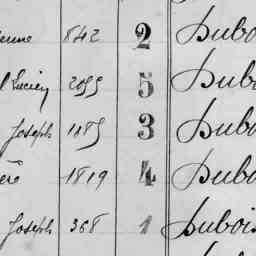 enne 842 2 Dubo
l Lucien 2099 5 Dubo
Joseph 1189 3 Dubo
ère 1819 4 Dubo
Joseph 368 1 Dubois